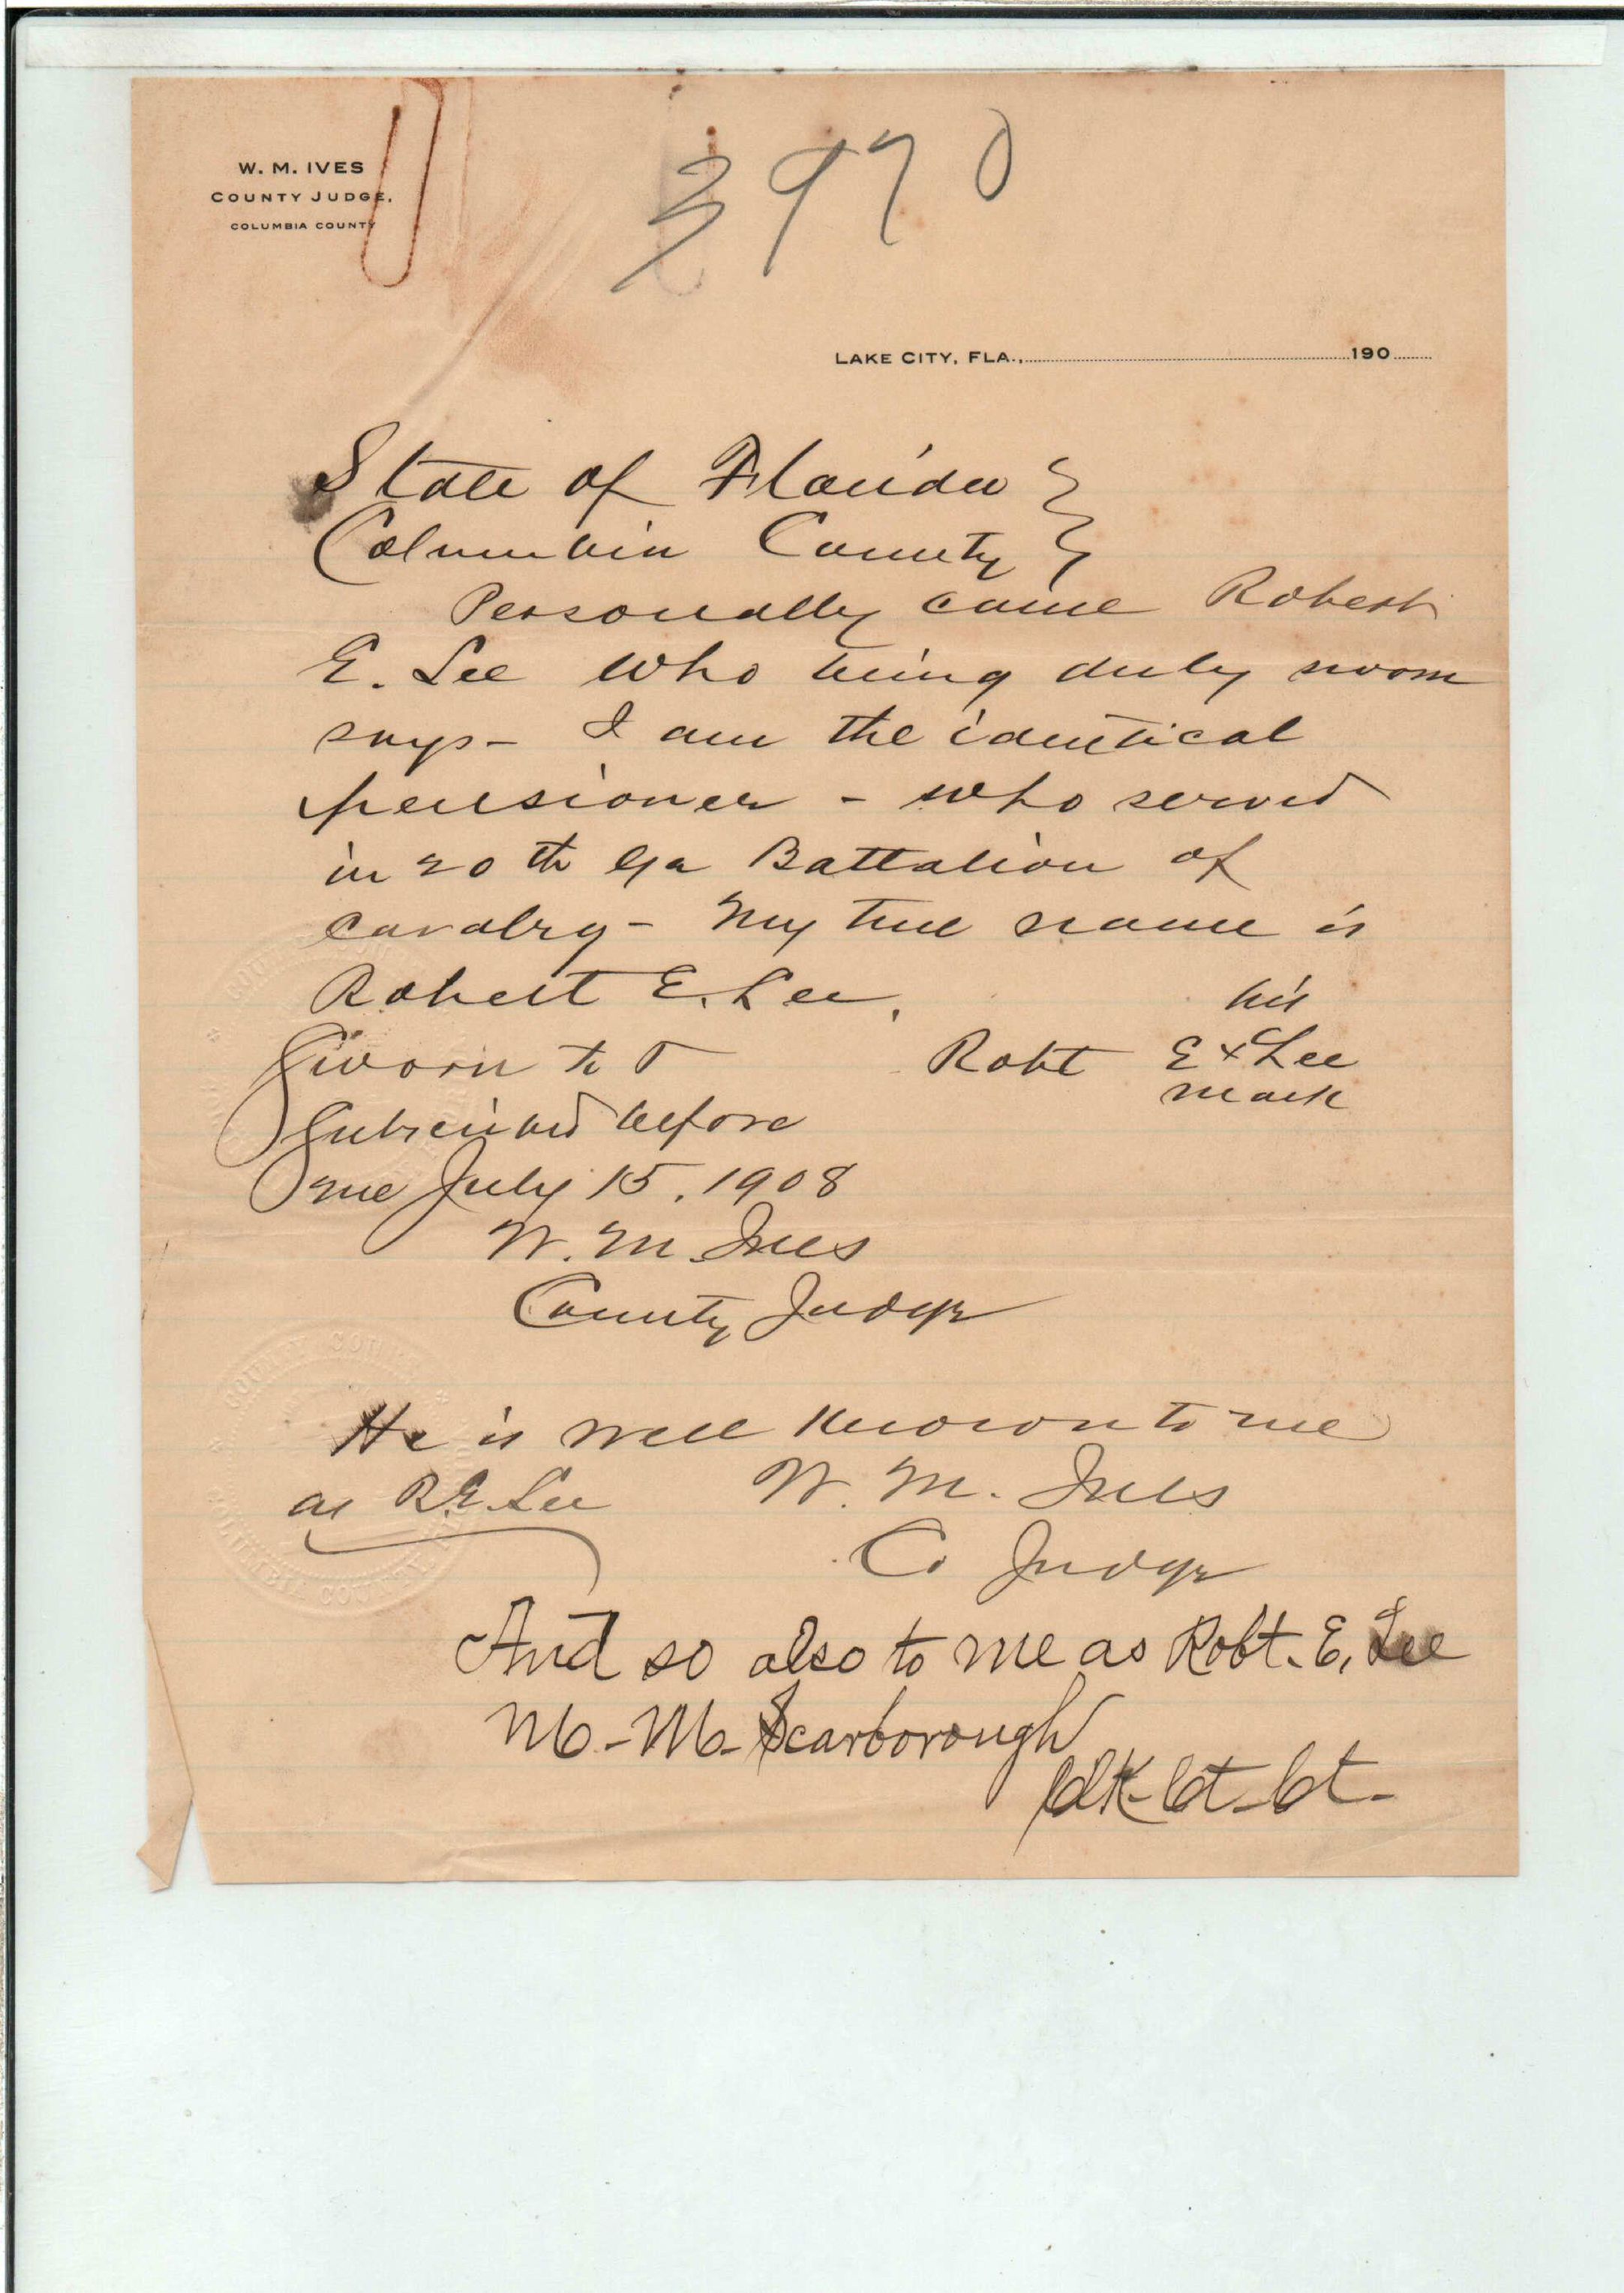 W. M. IVES
COUNTY JUDGE,
COLUMBIA COUNTY
3970
LAKE CITY, FLA., 190
State of Florida }
Columbia County }
Personally came Robert
E. Lee who being duly sworn
says - I am the identical
pensioner - who served
in 20th Ga Battalion of
cavalry - My true name is
Robert E. Lee.
his
Robt E x Lee
mark
Sworn to &
Subscribed before
me July 15, 1908
W. M. Ives
County Judge
He is well known to me
as R. E. Lee
W. M. Ives
Co Judge
And so also to me as Robt. E. Lee
M. M. Scarborough
Clk Ct Ct.
COUNTY COURT
COLUMBIA COUNTY